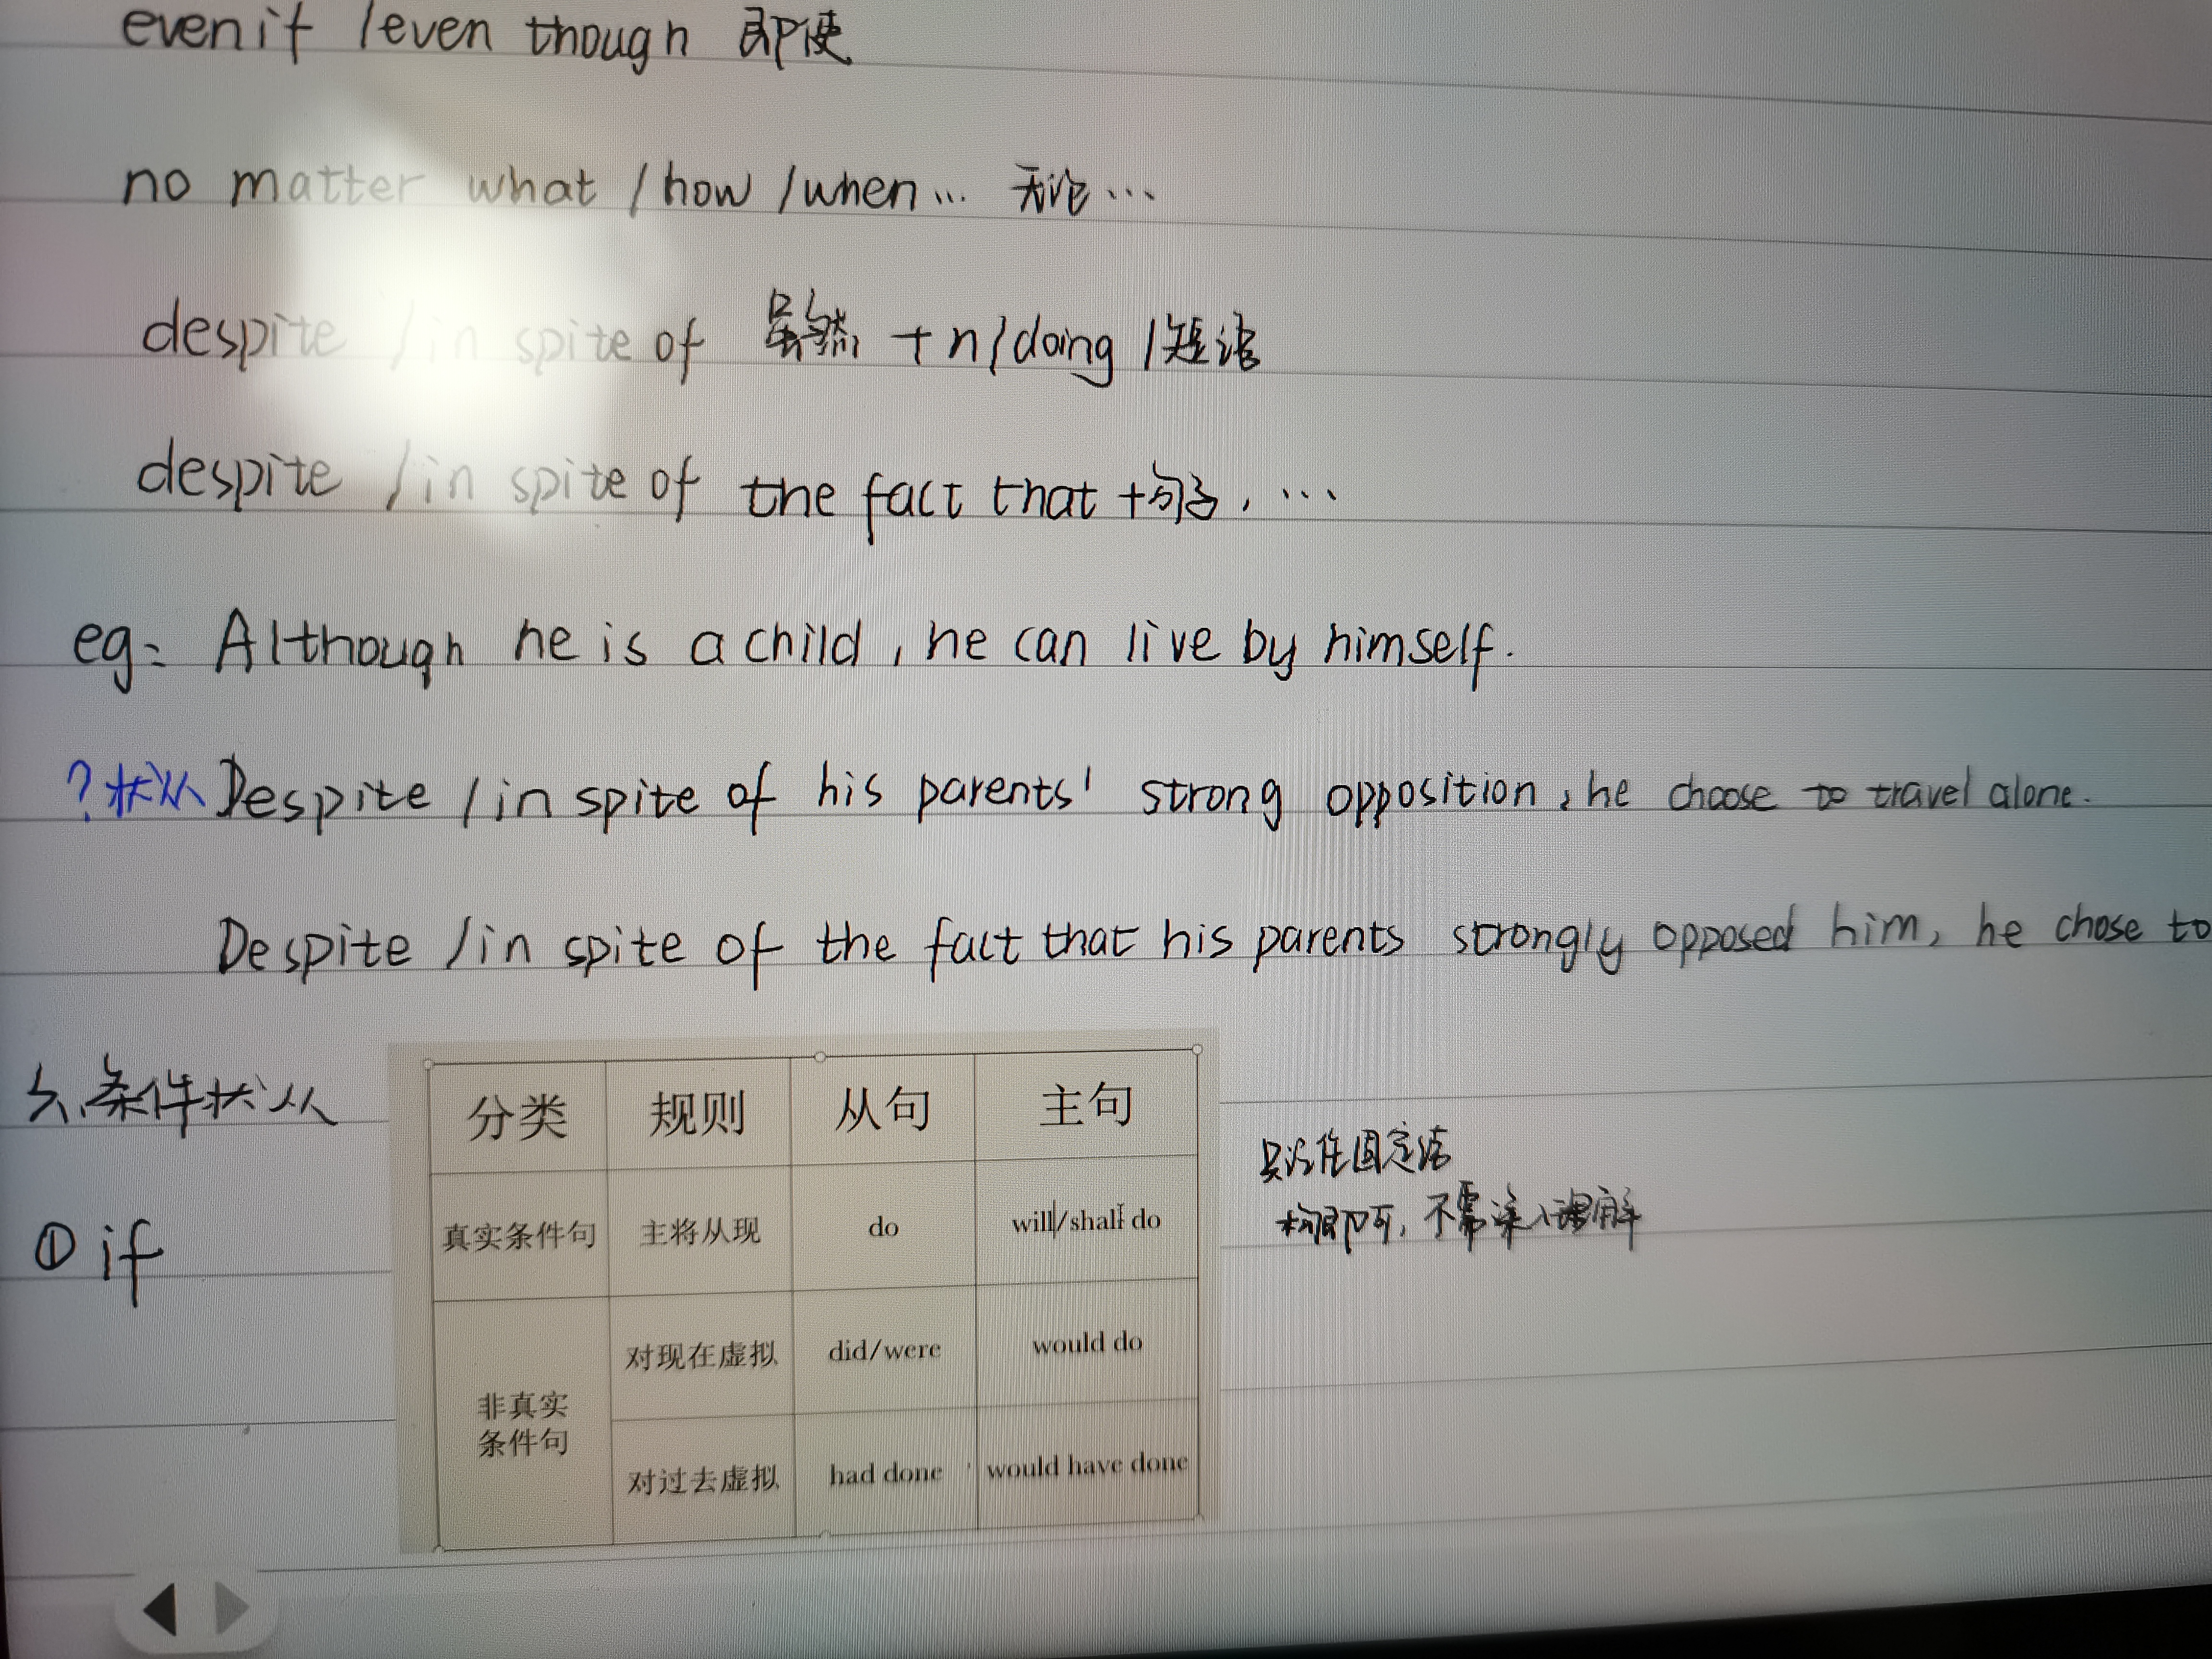 even if /even though 即使
no matter what /how /when... 无论...
despite /in spite of 虽然 +n/doing /短语
despite /in spite of the fact that +句子, ...
eg: Although he is a child, he can live by himself.
?状从 Despite /in spite of his parents' strong opposition, he choose to travel alone.
Despite /in spite of the fact that his parents strongly opposed him, he chose to
5、条件状从
分类 规则 从句 主句
真实条件句 主将从现 do will/shall do
只记住固定结
构即可, 不需深入理解
① if
非真实
条件句
对现在虚拟 did/were would do
对过去虚拟 had done would have done